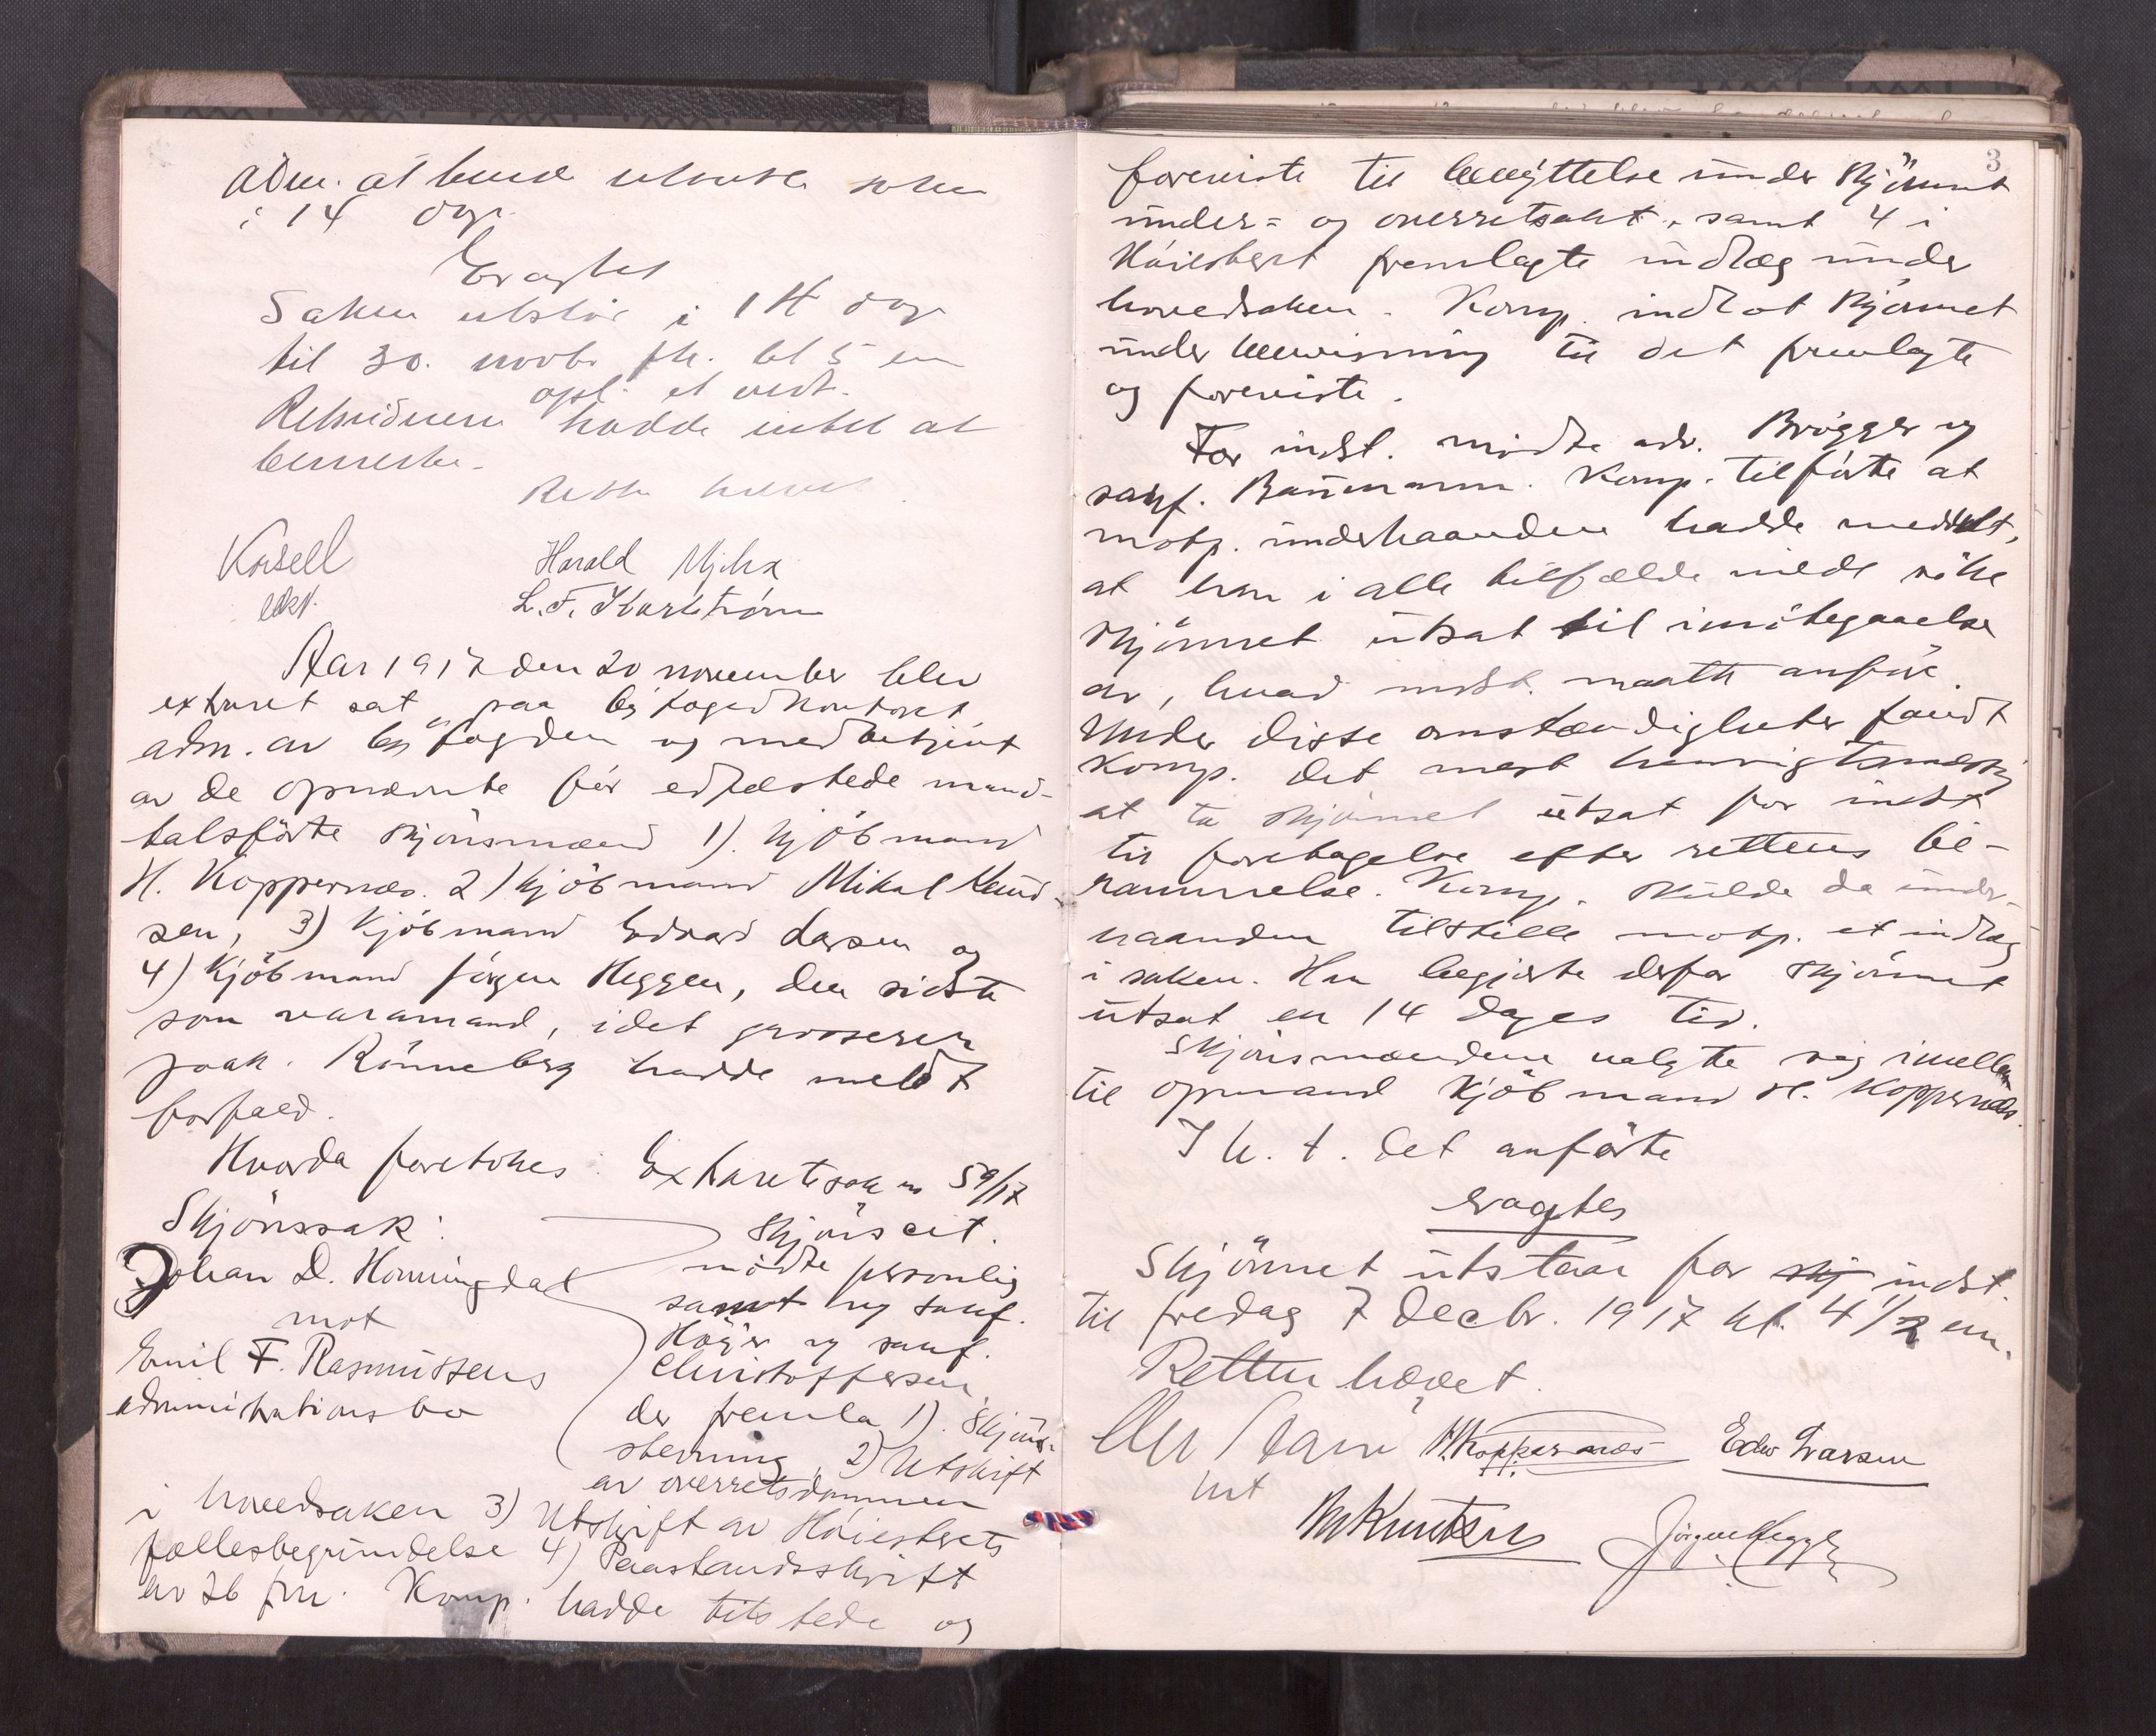 adm. at kunne utsætte saken
i 14 dage.
Eragtes
Saken utstår i 14 dage
til 30. novbr. ftk. kl 5 em
opl. et vedt.
Retsvidnerne hadde intet at
bemerke.
Retten hævet.
Harald
L. F. Karlstrøm
Aar 1917 den 20 november blev
extraret sat paa byfogedkontoret
adm. av byfogden og med betjent
av de opnævnte før edfæstede mand-
talsförte skjönsmænd 1). kjöbmand
H. Koppernæs. 2) kjöbmand Mikal Knud-
sen, 3) kjöbmand Edvard Larsen og
4) Kjöbmand Jörgen Heggen, den sidste
som varamand, idet grosserer
Joak. Rönneberg hadde meldt
forfald.
Hvorda foretokes: Extraretssak nr 59/17
Skjönssak:
Johan D. Honningdal
mot
Emil F. Rasmussens
administrationsbo
Skjönscit.
mödte personlig
samt og sakf.
Höyer og sakf.
Christoffersen,
der fremla 1). Skjöns-
stevning, 2) Utskrift
av overretsdommen
i hovedsaken 3) Utskrift av Höiesterets
fællesbegrundelse 4) Paastandsskrift
av 26 f.m. Komp. hadde tilstede og
3
foreviste til benyttelse under skjönnet
under= og overretsakt, samt 4 i
Höiesteret fremlagte indlæg under
hovedsaken. Komp. indlot skjönnet
under henvisning til det fremlagte
og foreviste.
For indst. mödte adv. Brögger og
sakf. Baumann. Komp. tilförte at
motp. underhaanden hadde meddelt,
at han i alle tilfælde vilde söke
skjönnet utsat til imötegaaelse
av, hvad indst. maatte anföre.
Under disse omstændigheter fandt
komp. det mest hensigtsmæssig
at ta skjönnet utsat for indst
til foretagelse efter rettens be-
rammelse. Komp. skulde da under-
haanden tilstille motp. et indlæg
i saken. Han begjærte derfor skjönnet
utsat en 14 dages tid.
Skjönsmændene valgte sig imellem
til opmand kjöbmand H. Koppernæs.
I h. t. det anförte
eragtes
Skjönnet utstaar for indst.
til fredag 7 decbr. 1917 kl. 4 1/2 em.
Retten hævet.
H. Koppernæs Edv Larsen
M Knutsen Jörgen Heggen